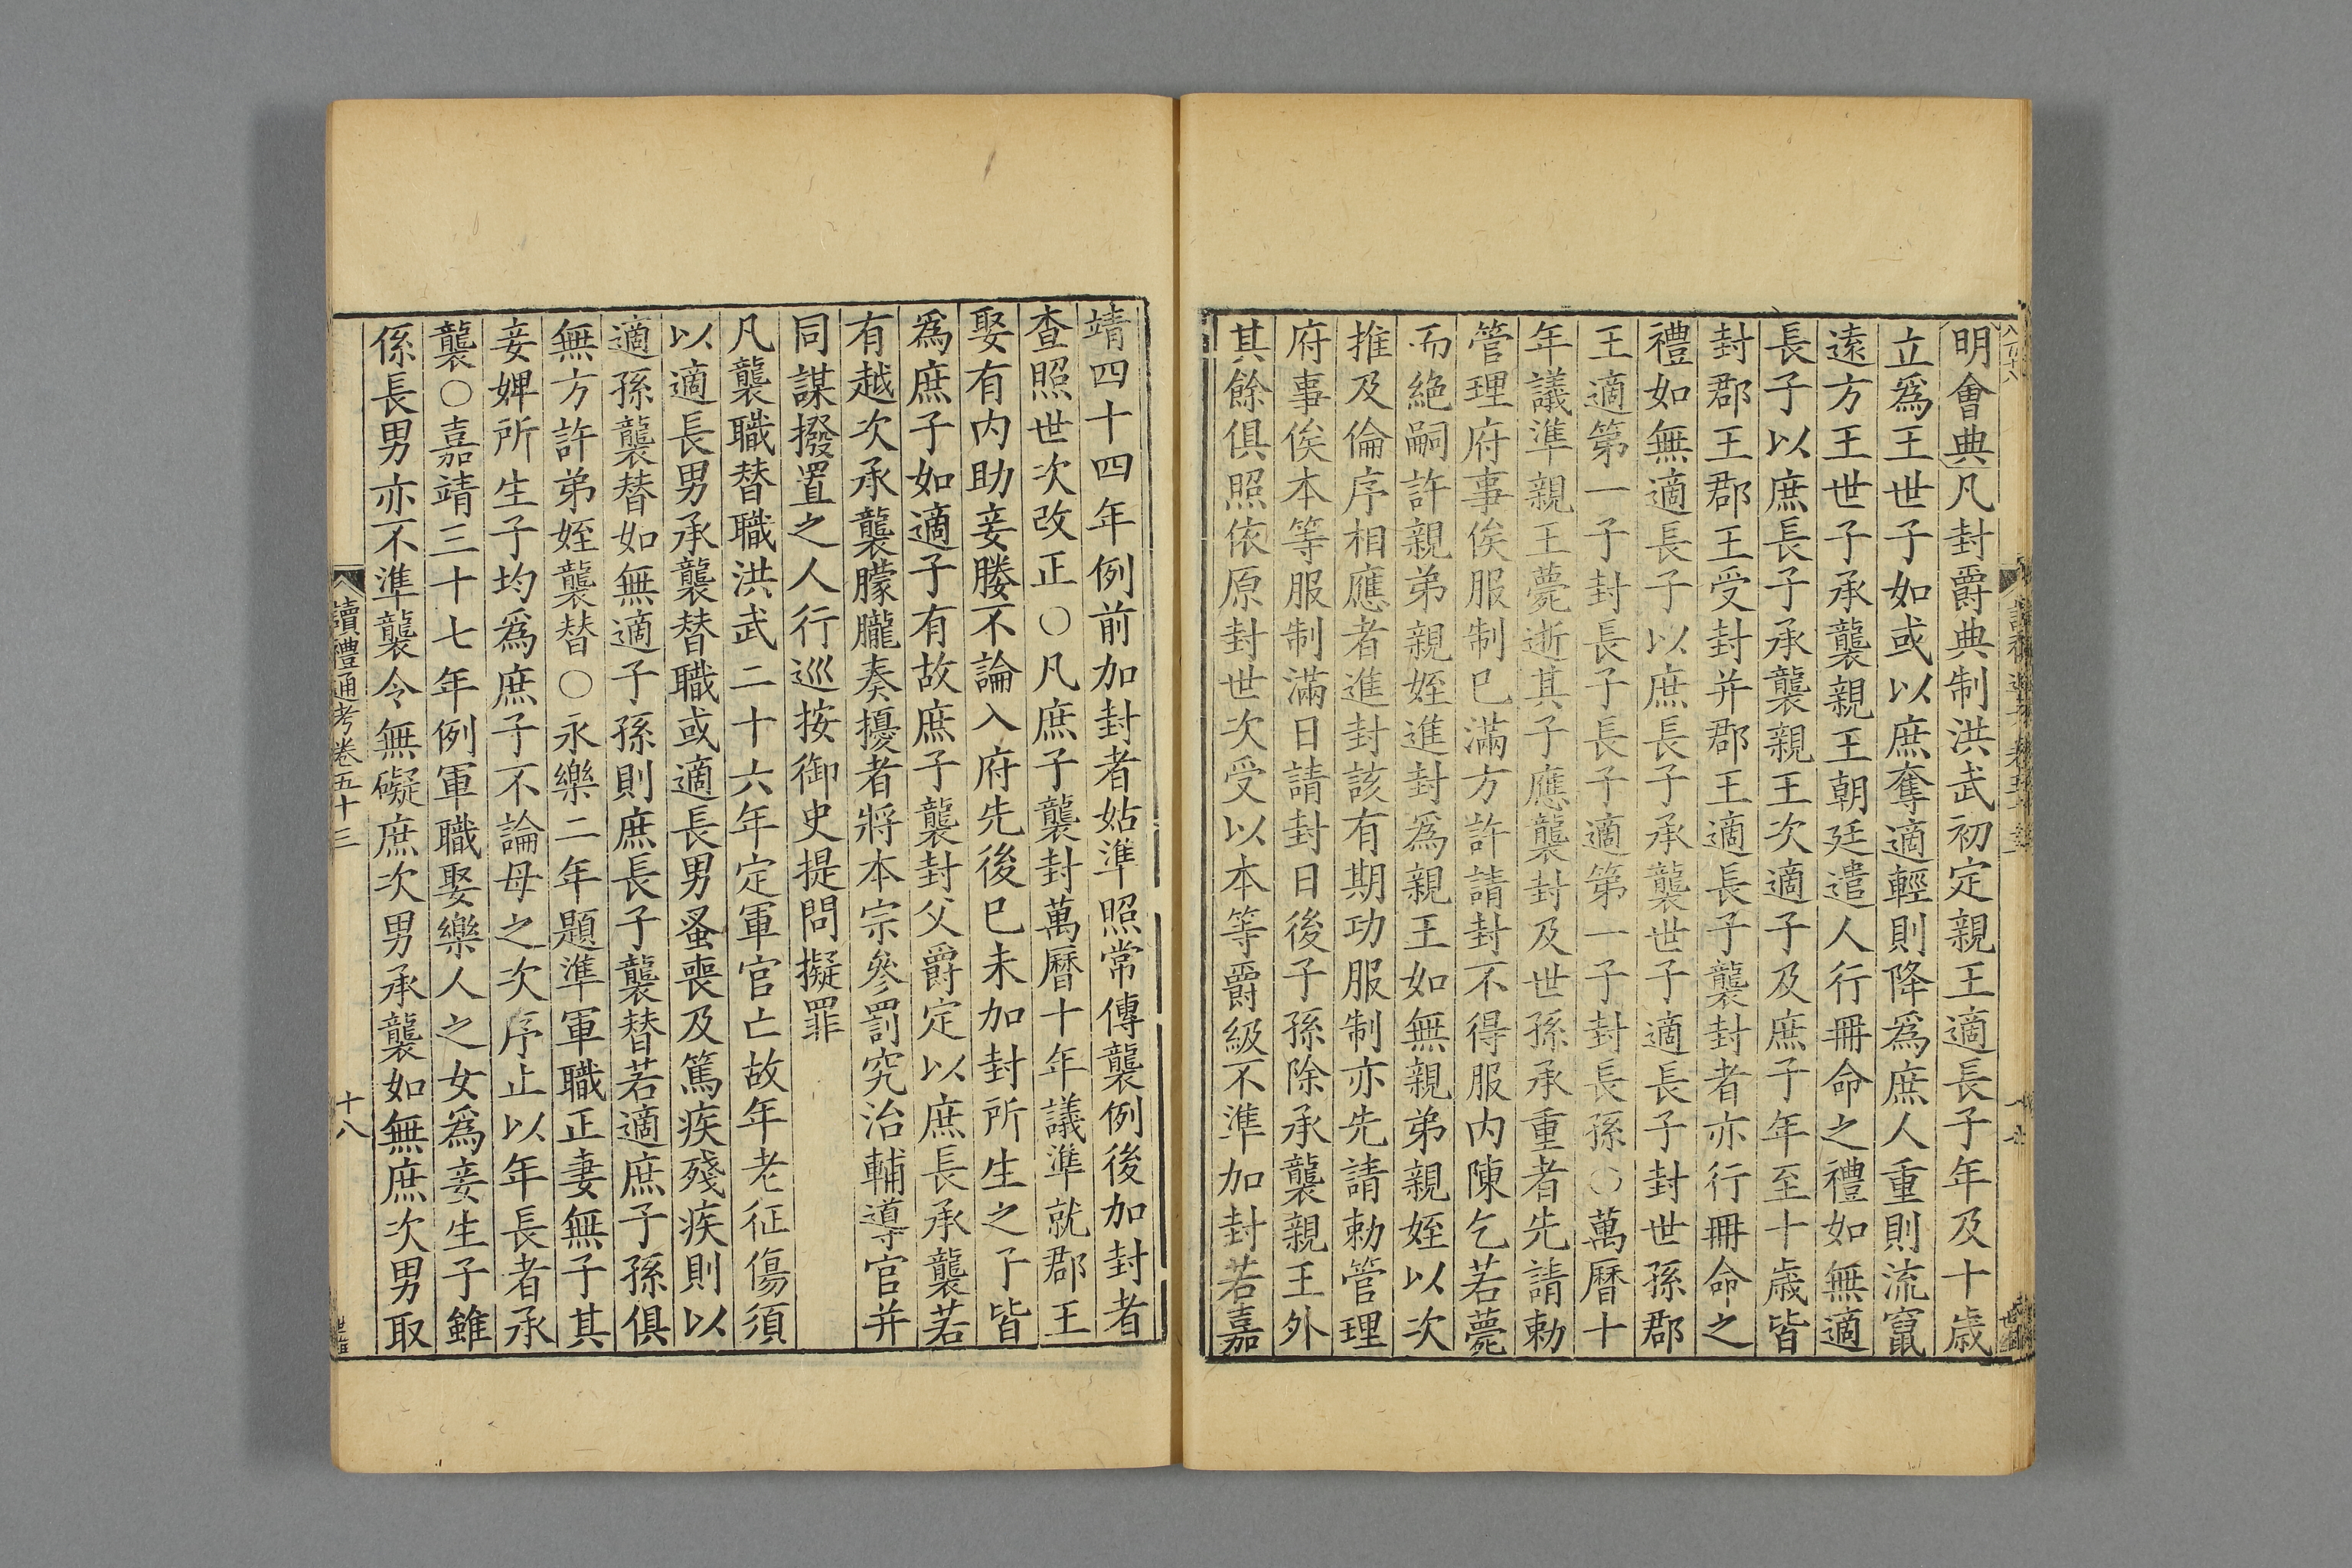 明會典凡封爵典制洪武初定親王適長子年及十歲
立爲王世子如或以庶奪適輕則降爲庶人重則流竄
遠方王世子承襲親王朝廷遣人行冊命之禮如無適
長子以庶長子承襲親王次適子及庶子年至十歲皆
封郡王郡王受封并郡王適長子襲封者亦行冊命之
禮如無適長子以庶長子承襲世子適長子封世孫郡
王適第一子封長子長子適第一子封長孫○萬曆十
年議準親王薨逝其子應襲封及世孫承重者先請勅
管理府事俟服制已滿方許請封不得服内陳乞若薨
而絶嗣許親弟親姪進封爲親王如無親弟親姪以次
推及倫序相應者進封該有期功服制亦先請勅管理
府事俟本等服制滿日請封日後子孫除承襲親王外
其餘俱照依原封世次受以本等爵級不準加封若嘉
靖四十四年例前加封者姑準照常傳襲例後加封者
查照世次改正○凡庶子襲封萬曆十年議準就郡王
娶有内助妾媵不論入府先後已未加封所生之子皆
爲庶子如適子有故庶子襲封父爵定以庶長承襲若
有越次承襲朦朧奏擾者將本宗參罰究治輔導官并
同謀撥置之人行巡按御史提問擬罪
凡襲職替職洪武二十六年定軍官亡故年老征傷須
以適長男承襲替職或適長男蚤喪及篤疾殘疾則以
適孫襲替如無適子孫則庶長子襲替若適庶子孫俱
無方許弟姪襲替○永樂二年題準軍職正妻無子其
妾婢所生子均爲庶子不論母之次序止以年長者承
襲○嘉靖三十七年例軍職娶樂人之女爲妾生子雖
係長男亦不準襲令無礙庶次男承襲如無庶次男取
讀禮通考卷五十三
十八